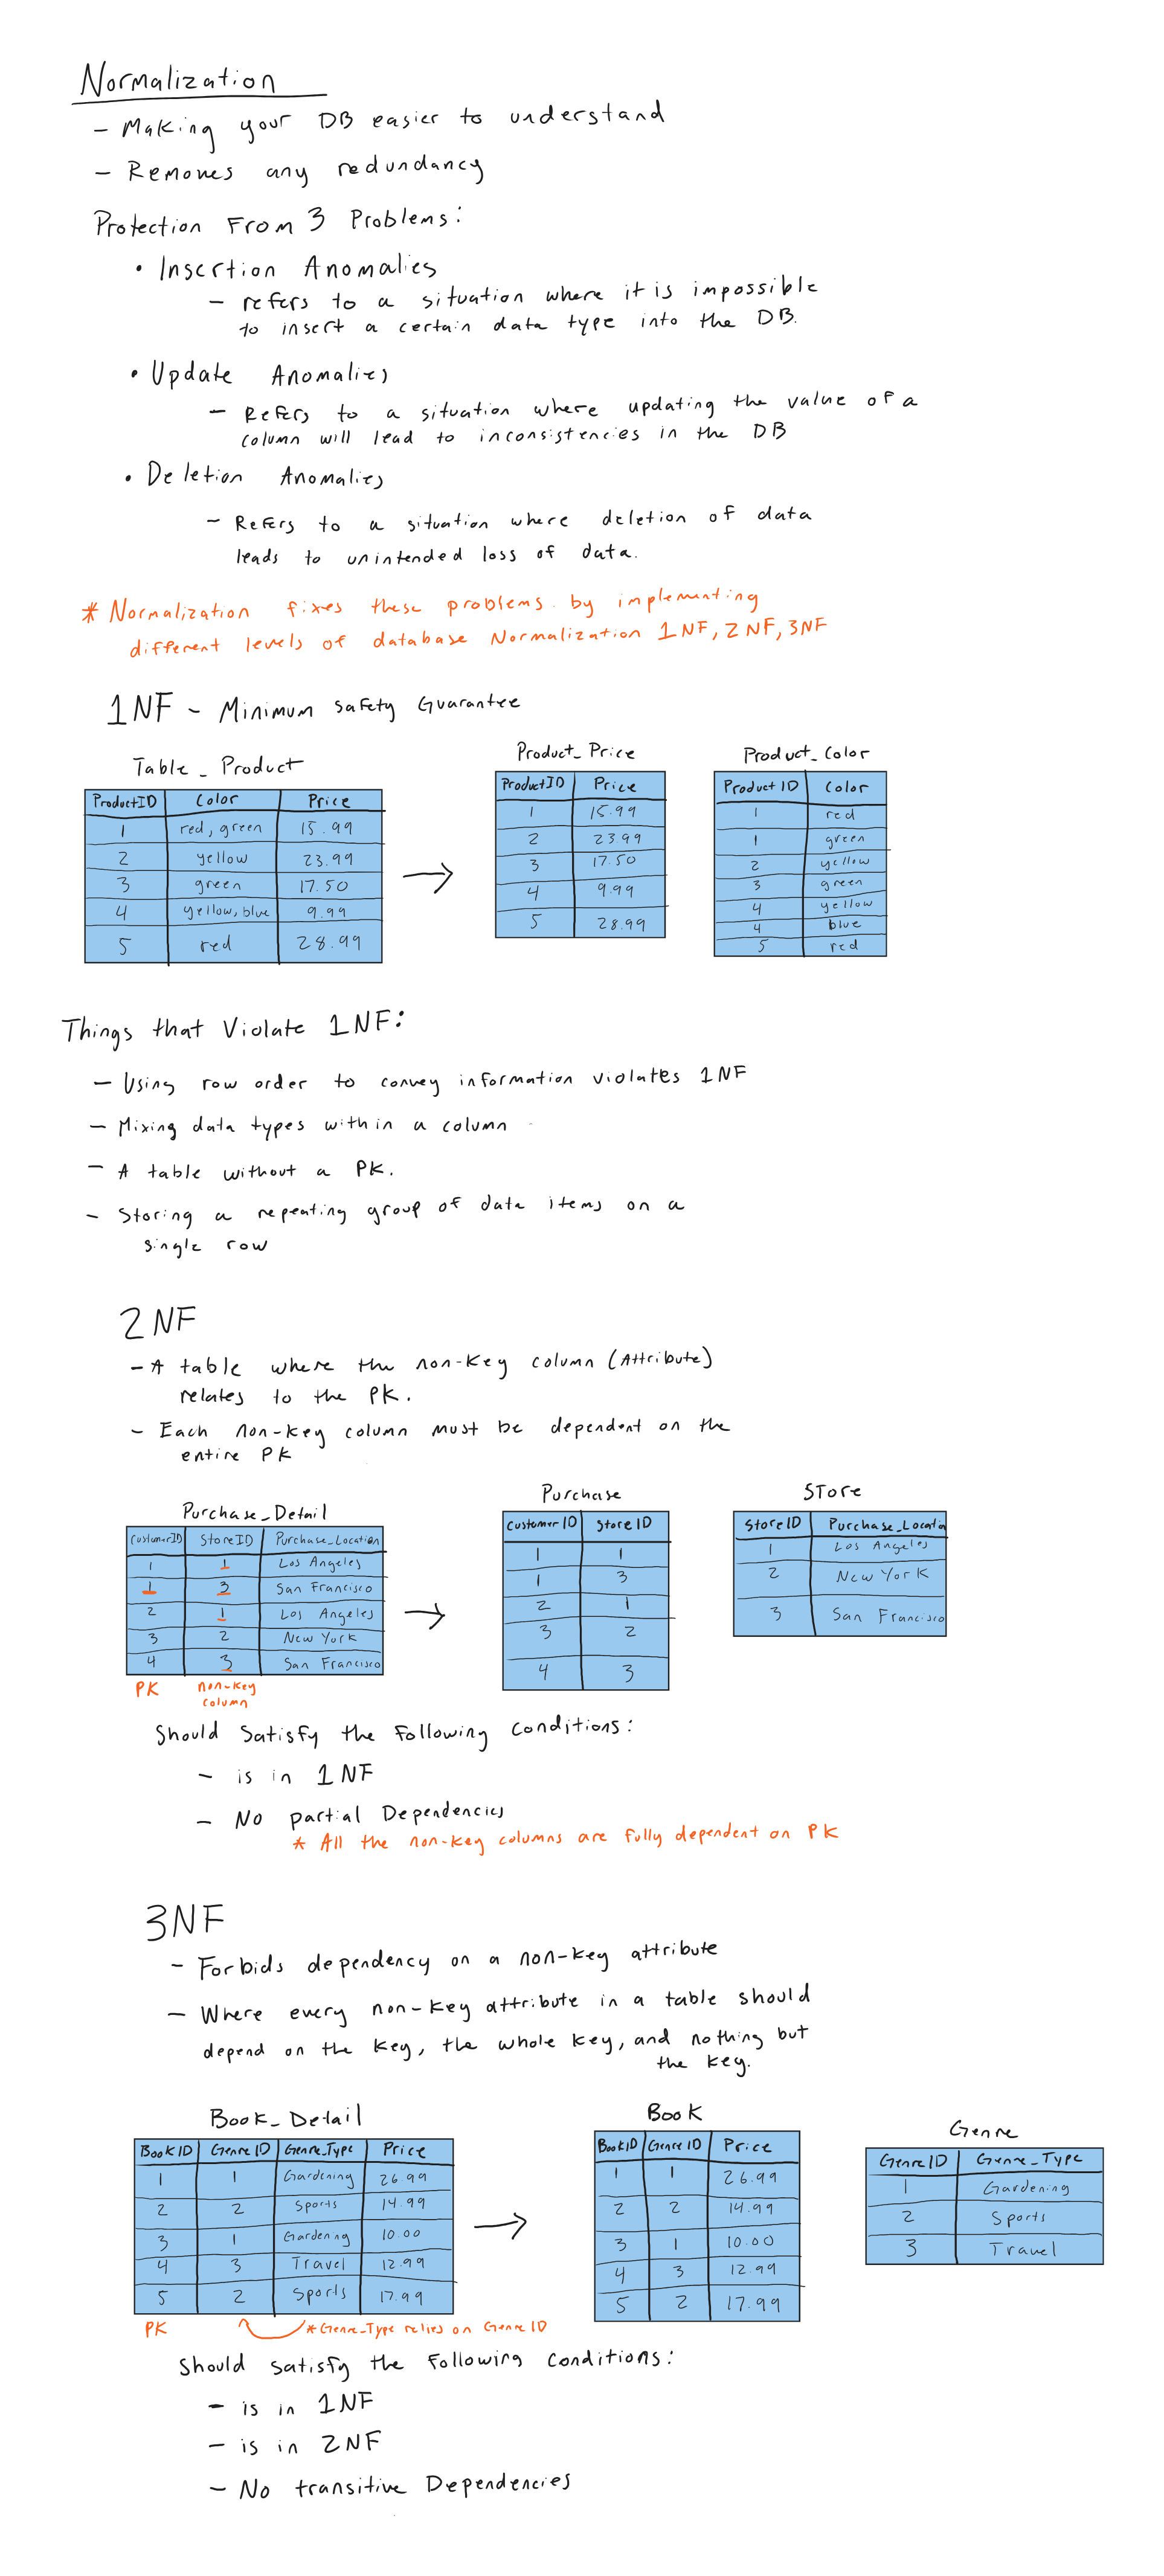 Normalization
- Making your DB easier to understand
- Removes any redundancy
Protection From 3 Problems:
• Insertion Anomalies
- refers to a situation where it is impossible
to insert a certain data type into the DB.
• Update Anomalies
- Refers to a situation where updating the value of a
column will lead to inconsistencies in the DB
• Deletion Anomalies
- Refers to a situation where deletion of data
leads to unintended loss of data.
* Normalization fixes these problems by implementing
different levels of database Normalization 1NF, 2NF, 3NF
1NF - Minimum Safety Guarantee
Table_Product
ProductID Color Price
1 red, green 15.99
2 yellow 23.99
3 green 17.50
4 yellow, blue 9.99
5 red 28.99
Product_Price
ProductID Price
1 15.99
2 23.99
3 17.50
4 9.99
5 28.99
Product_Color
Product ID Color
1 red
1 green
2 yellow
3 green
4 yellow
4 blue
5 red
Things that Violate 1NF:
- Using row order to convey information violates 1NF
- Mixing data types within a column
- A table without a PK.
- Storing a repeating group of data items on a
single row
2NF
- A table where the non-key column (Attribute)
relates to the PK.
- Each non-key column must be dependent on the
entire PK
Purchase_Detail
CustomerID StoreID Purchase_Location
1 1 Los Angeles
1 3 San Francisco
2 1 Los Angeles
3 2 New York
4 3 San Francisco
PK non-key
column
Purchase
Customer ID Store ID
1 1
1 3
2 1
3 2
4 3
STore
Store ID Purchase_Locatio
1 Los Angeles
2 New York
3 San Francisco
Should Satisfy the Following Conditions:
- is in 1NF
- No partial Dependencies
* All the non-key columns are fully dependent on PK
3NF
- Forbids dependency on a non-key attribute
- Where every non-key attribute in a table should
depend on the key, the whole key, and nothing but
the key.
Book_Detail
Book ID Genre ID Genre_Type Price
1 1 Gardening 26.99
2 2 Sports 14.99
3 1 Gardening 10.00
4 3 Travel 12.99
5 2 Sports 17.99
PK *Genre_Type relies on Genre ID
Book
BookID Genre ID Price
1 1 26.99
2 2 14.99
3 1 10.00
4 3 12.99
5 2 17.99
Genre
Genre ID Genre_Type
1 Gardening
2 Sports
3 Travel
Should satisfy the Following Conditions:
- is in 1NF
- is in 2NF
- No transitive Dependencies